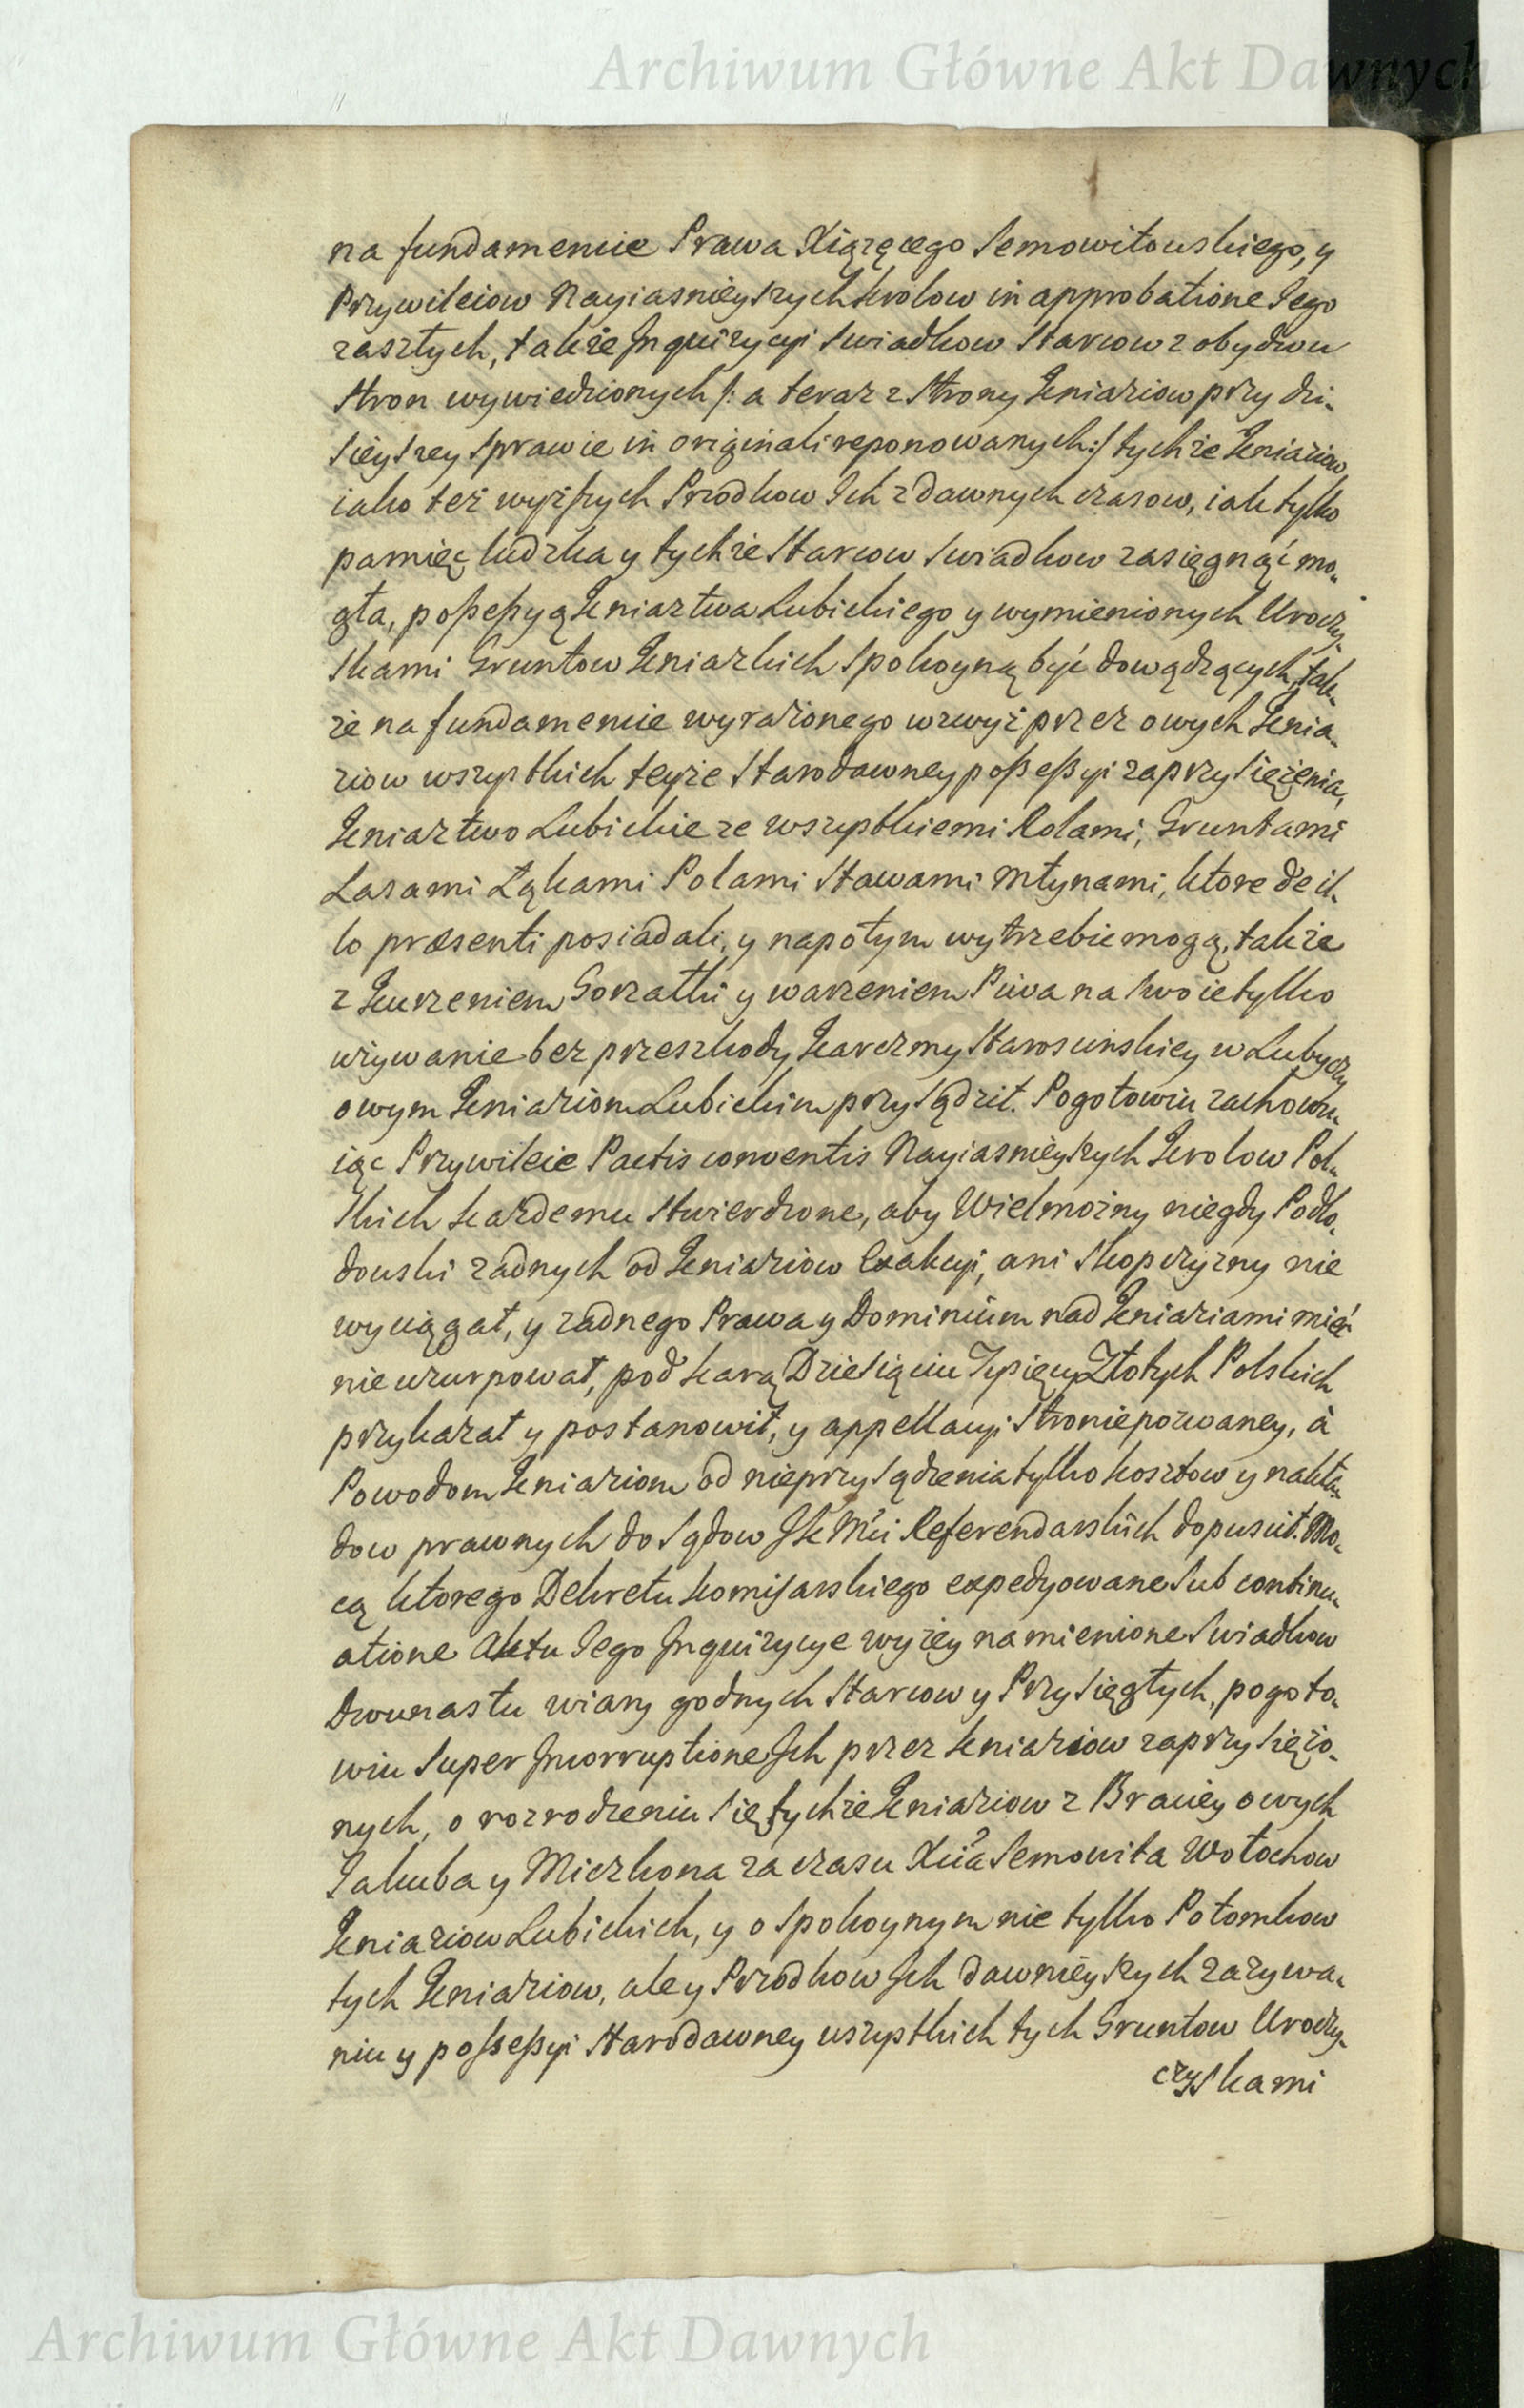 Archiwum Główne Akt Dawnych
na fundamencie Prawa Xiążęcego Semowitowskiego, y
Przywileiow Nayiasnieyszych Krolow in approbatione Jego
zaszłych, także Jnquizycyi Swiadkow Starcow z obydwu
Stron wywiedzionych /: a teraz z Strony Kniaziow przy dzi-
sieyszey Sprawie in originali reponowanych :/ tychże Kniaziow
iako też wyższych Przodkow Jch z dawnych czasow, iak tylko
pamięc ludzka y tychże Starcow Swiadkow zasięgnąć mo-
gła, possessyą Kniaztwa Lubickiego y wymienionych Uroczy-
skami Gruntow Kniazkich Spokoyną być dowądzących, tak-
że na fundamencie wyrażonego wzwyż przez owych Knia-
ziow wszystkich teyże Starodawney possessyi zaprzysiężenia,
Kniaztwo Lubickie ze wszystkiemi Rolami, Gruntami
Lasami Łąkami Polami Stawami Młynami, ktore de il-
lo præsenti posiadali, y napotym wytrzebic mogą, także
z Kurzeniem Gorzałki y warzeniem Piwa na Swoie tylko
używanie bez przeszkody Karczmy Starościńskiey w Lubyczy
owym Kniaziom Lubickim przysądził. Pogotowiu zachowu-
iąc Przywileie Pactis conventis Nayiasnieyszych Krolow Pol-
skich każdemu Stwierdzone, aby Wielmożny niegdy Podło-
dowski zadnych od Kniaziow Exakcyi, ani Skopczyzny nie
wyciągał, y zadnego Prawa y Dominium nad Kniaziami mieć
nie uzurpował, pod karą Dziesiąciu Tysięcy Złotych Polskich
przykazał y postanowił, y appellacyi Stronie pozwaney, à
Powodom Kniaziom od nieprzysądzenia tylko kosztow y nakła-
dow prawnych do Sądow JK Mci Referendarskich dopuścił. Mo-
cą ktorego Dekretu Komisarskiego expedyowane Sub continu-
atione Aktu Jego Jnquizycye wyżey namienione Swiadkow
Dwunastu wiary godnych Starcow y Przysięgłych, pogoto-
wiu Super Jncorruptione Jch przez Kniaziow zaprzysiężo-
nych, o rozrodzeniu Się tychże Kniaziow z Braciey owych
Jakuba y Miczkona za czasu Xcia Semowita Wołochow
Kniaziow Lubickich, y o Spokoynym nie tylko Potomkow
tych Kniaziow, ale y Przodkow Jch dawnieyszych zażywa-
niu y possessyi Starodawney wszystkich tych Gruntow Uroczy-
czyskami
Archiwum Główne Akt Dawnych